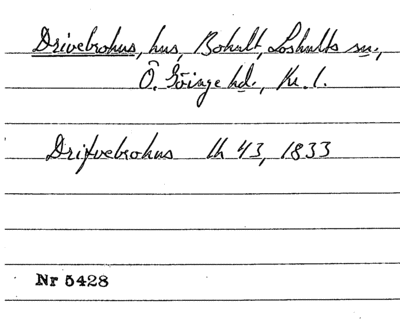 Drivebrohus, hus, Bohult, Loshults sn.,
Ö. Göinge hd., Kr. l.
Drifvebrohus lh 43, 1833
Nr 5428